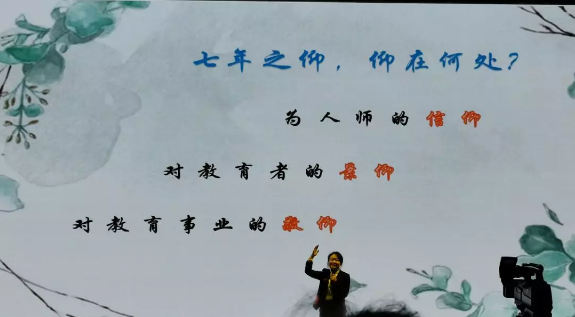 七年之仰，仰在何处？
为人师的信仰
对教育者的景仰
对教育事业的敬仰